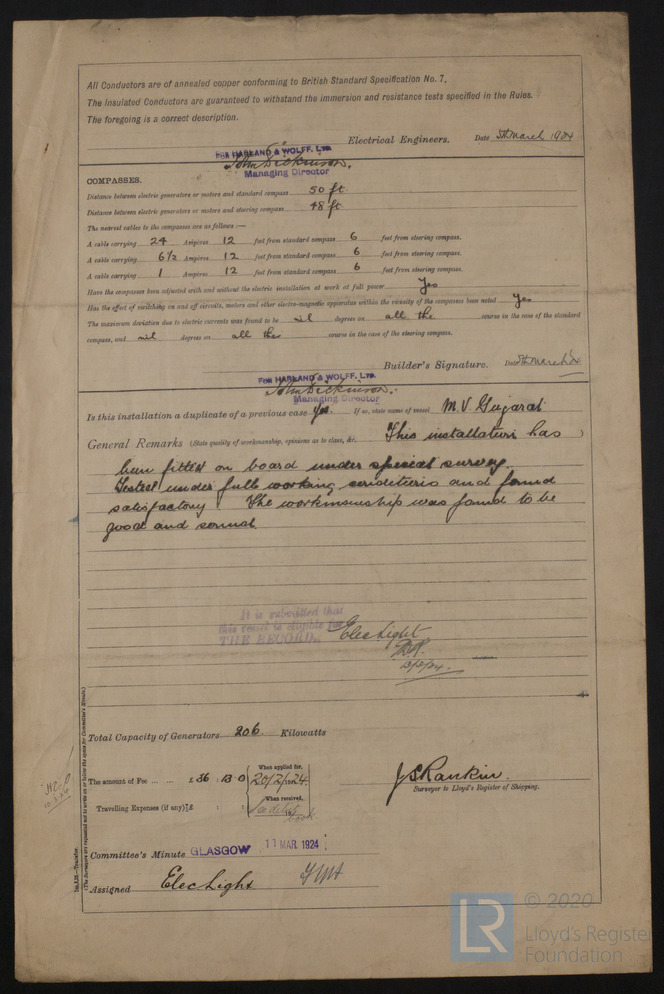 All Conductors are of annealed copper conforming to British Standard Specification No. 7.
The Insulated Conductors are guaranteed to withstand the immersion and resistance tests specified in the Rules.
The foregoing is a correct description.
Electrical Engineers. Date 5th March 1924
FOR HARLAND & WOLFF, LTD.
John Dickinson.
Managing Director
COMPASSES.
Distance between electric generators or motors and standard compass 50 ft.
Distance between electric generators or motors and steering compass 48 ft
The nearest cables to the compasses are as follows:—
A cable carrying 24 Ampères 12 feet from standard compass 6 feet from steering compass.
A cable carrying 6½ Ampères 12 feet from standard compass 6 feet from steering compass.
A cable carrying 1 Ampères 12 feet from standard compass 6 feet from steering compass.
Have the compasses been adjusted with and without the electric installation at work at full power Yes
Has the effect of switching on and off circuits, motors and other electro-magnetic apparatus within the vicinity of the compasses been noted yes
The maximum deviation due to electric currents was found to be nil degrees on all the course in the case of the standard
compass, and nil degrees on all the course in the case of the steering compass.
Builder's Signature. Date 5th March 24
FOR HARLAND & WOLFF, LTD.
John Dickinson.
Managing Director
Is this installation a duplicate of a previous case Yes. If so, state name of vessel M.V. Gujarat
General Remarks (State quality of workmanship, opinions as to class, &c. This installation has
been fitted on board under special survey.
Tested under full working conditions and found
satisfactory. The workmanship was found to be
good and sound.
It is submitted that
this vessel is eligible for
THE RECORD. Elec Light
13/3/24.
Total Capacity of Generators 206 Kilowatts
The amount of Fee ... ... £ 36 : 13 : 0
When applied for,
20/2/1924.
J S Rankin.
Surveyor to Lloyd's Register of Shipping.
Travelling Expenses (if any) £ : :
When received,
Committee's Minute GLASGOW 11 MAR 1924
Assigned Elec Light
(The Surveyors are requested not to write on or below the space for Committee's Minute.)
© 2020
LR
Lloyd's Register
Foundation